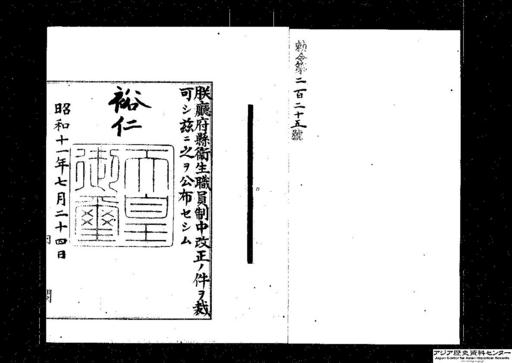 勅令第二百二十五號
朕廳府縣衛生職員制中改正ノ件ヲ裁
可シ茲ニ之ヲ公布セシム
裕仁
天皇御璽
昭和十一年七月二十四日
アジア歴史資料センター
Japan Center for Asian Historical Records